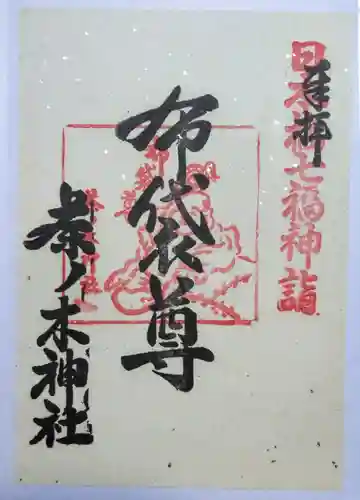 奉拝
日本橋七福神詣
布袋尊
茶ノ木神社